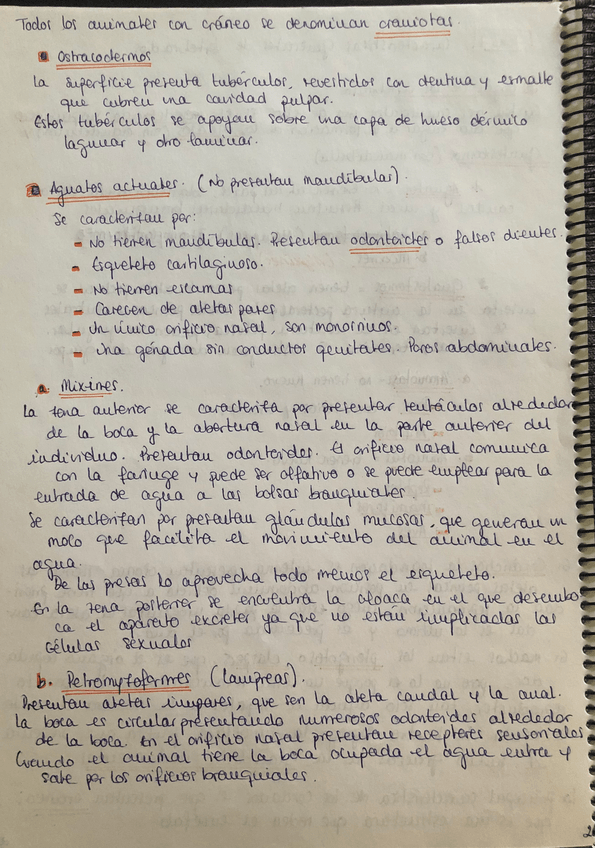 Todos los animales con cráneo se denominan craniotas.
Ostracodermos
La superficie presenta tubérculos, revestidos con dentina y esmalte
que cubren una cavidad pulpar.
Estos tubérculos se apoyan sobre una capa de hueso dérmico
lagunar y otro laminar.
Agnatos actuales. (No presentan mandíbulas).
Se caracterizan por:
- No tienen mandíbulas. Presentan odontoides o falsos dientes.
- Esqueleto cartilaginoso.
- No tienen escamas
- Carecen de aletas pares
- Un único orificio nasal, son monorinos.
- Una gónada sin conductos genitales. Poros abdominales.
a. Mixines.
La zona anterior se caracteriza por presentar tentáculos alrededor
de la boca y la abertura nasal en la parte anterior del
individuo. Presentan odontoides. El orificio nasal comunica
con la faringe y puede ser olfativo o se puede emplear para la
entrada de agua a las bolsas branquiales.
Se caracterizan por presentan glándulas mucosas, que generan un
moco que facilita el movimiento del animal en el
agua.
De las presas lo aprovecha todo menos el esqueleto.
En la zona posterior se encuentra la cloaca en el que desembo
ca el aparato excretor ya que no están implicadas las
células sexuales
b. Petromyzoformes (lampreas).
Presentan aletas impares, que son la aleta caudal y la anal.
La boca es circular presentando numerosos odontoides alrededor
de la boca. En el orificio nasal presentan receptores sensoriales
Cuando el animal tiene la boca ocupada el agua entra y
sale por los orificios branquiales.